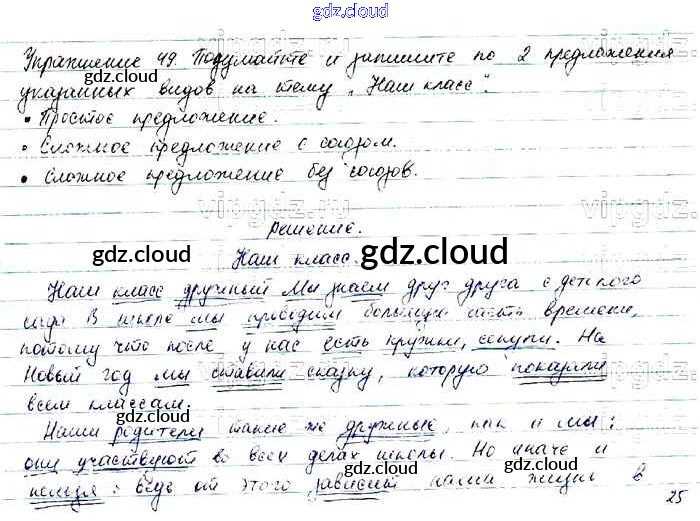 gdz.cloud
Упражнение 49. Подумайте и запишите по 2 предложения
указанных видов на тему „Наш класс".
• Простое предложение.
• Сложное предложение с союзом.
• Сложное предложение без союзов.
vipgdz.ru
Решение.
gdz.cloud
gdz.cloud
Наш класс.
Наш класс дружный Мы знаем друг друга с детского
сада В школе мы проводим большую часть времени,
потому что после у нас есть кружки, секции. На
Новый год мы ставили сказку, которую показали
всем классам.
gdz.cloud
Наши родители такие же дружные, как и мы:
они участвуют во всех делах школы. Но иначе и
нельзя: ведь от этого зависит наши жизни в
gdz.cloud
25